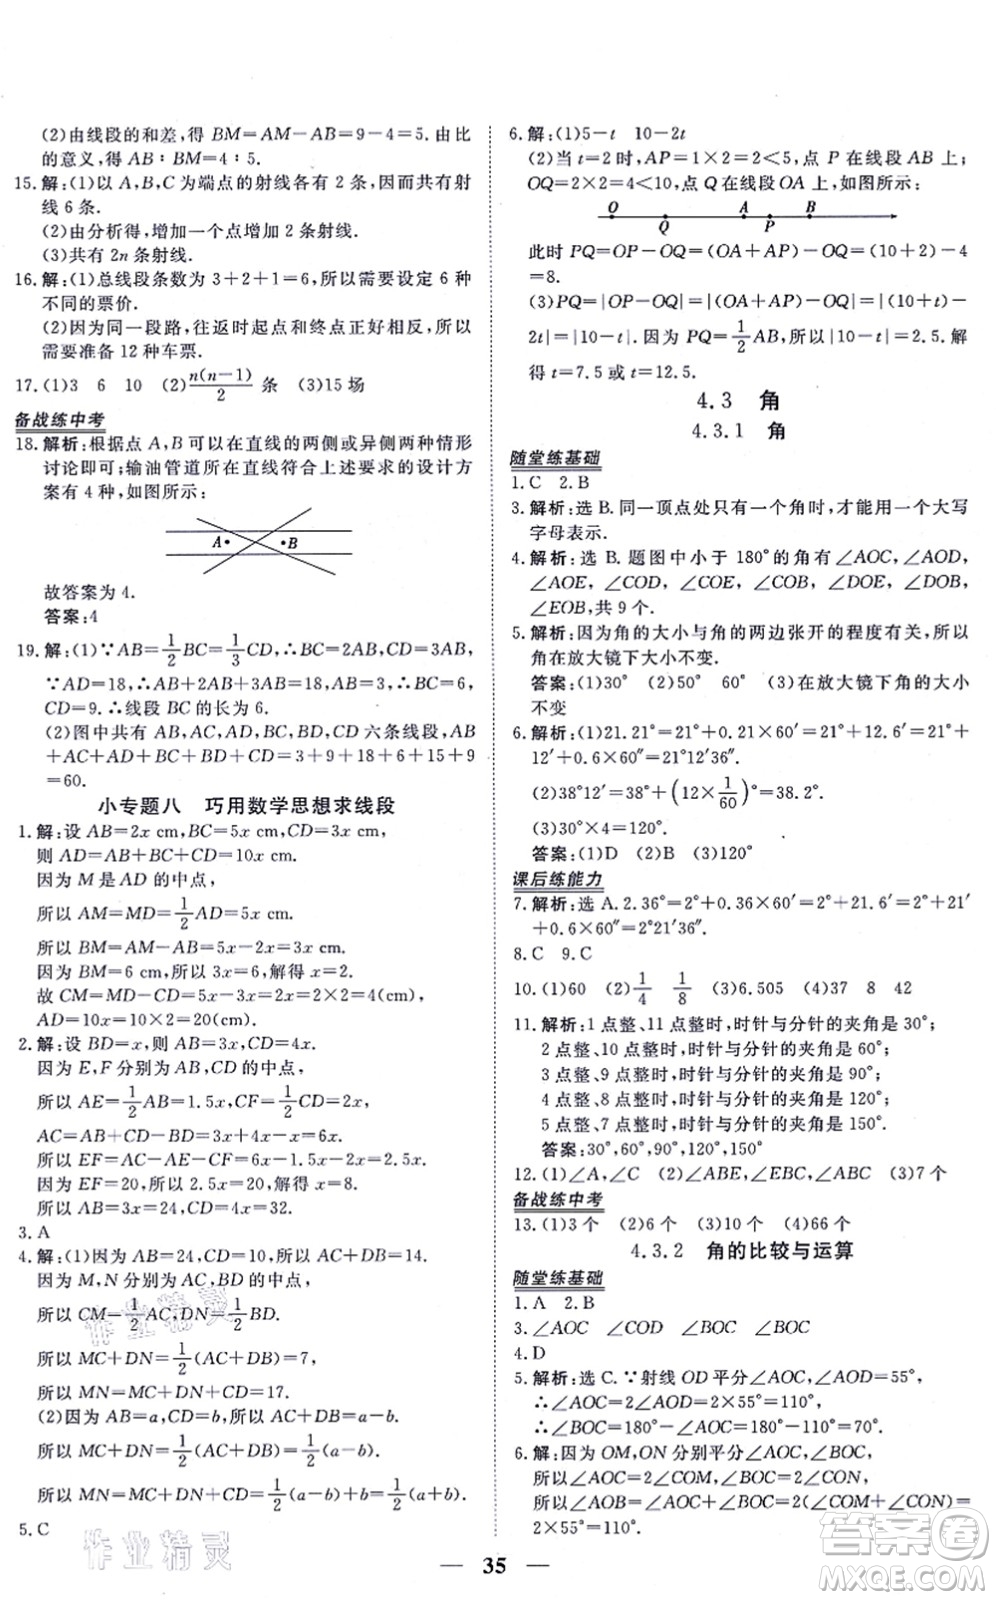 (2)由线段的和差,得 BM=AM-AB=9-4=5.由比
的意义,得 AB∶BM=4∶5.
15.解:(1)以 A,B,C 为端点的射线各有 2 条,因而共有射
线 6 条.
(2)由分析得,增加一个点增加 2 条射线.
(3)共有 2n 条射线.
16.解:(1)总线段条数为 3+2+1=6,所以需要设置 6 种
不同的票价.
(2)因为同一段路,往返时起点和终点正好相反,所以
需要准备 12 种车票.
17.(1)3 6 10 (2)n(n-1)/2 条 (3)15 场
备战练中考
18.解析:根据点 A,B 可以在直线的两侧或异侧两种情形
讨论即可;输油管道所在直线符合上述要求的设计方
案有 4 种,如图所示:
A B
故答案为 4.
答案:4
19.解:(1)∵AB=1/2 BC=1/3 CD,∴BC=2AB,CD=3AB,
∵AD=18,∴AB+2AB+3AB=18,∴AB=3,BC=6,
CD=9.∴线段 BC 的长为 6.
(2)图中共有 AB,AC,AD,BC,BD,CD 六条线段,AB
+AC+AD+BC+BD+CD=3+9+18+6+15+9
=60.
小专题八 巧用数学思想求线段
1.解:设 AB=2x cm,BC=5x cm,CD=3x cm,
则 AD=AB+BC+CD=10x cm.
因为 M 是 AD 的中点,
所以 AM=MD=1/2 AD=5x cm.
所以 BM=AM-AB=5x-2x=3x cm.
因为 BM=6 cm,所以 3x=6,解得 x=2.
故 CM=MD-CD=5x-3x=2x=2×2=4(cm),
AD=10x=10×2=20(cm).
2.解:设 BD=x,则 AB=3x,CD=4x.
因为 E,F 分别为 AB,CD 的中点,
所以 AE=1/2 AB=1.5x,CF=1/2 CD=2x,
AC=AB+CD-BD=3x+4x-x=6x.
所以 EF=AC-AE-CF=6x-1.5x-2x=2.5x.
因为 EF=20,所以 2.5x=20,解得 x=8.
所以 AB=3x=24,CD=4x=32.
3.A
4.解:(1)因为 AB=24,CD=10,所以 AC+DB=14.
因为 M,N 分别为 AC,BD 的中点,
所以 CM=1/2 AC,DN=1/2 BD.
所以 MC+DN=1/2(AC+DB)=7,
所以 MN=MC+DN+CD=17.
(2)因为 AB=a,CD=b,所以 AC+DB=a-b,
所以 MC+DN=1/2(AC+DB)=1/2(a-b),
所以 MN=MC+DN+CD=1/2(a-b)+b=1/2(a+b).
5.C
6.解:(1)5-t 10-2t
(2)当 t=2 时,AP=1×2=2,点 P 在线段 AB 上;
OQ=2×2=4<10,点 Q 在线段 OA 上,如图所示:
O Q A P B
此时 PQ=OP-OQ=(OA+AP)-OQ=(10+2)-4
=8.
(3)PQ=|OP-OQ|=|(OA+AP)-OQ|=|(10+t)-
2t|=|10-t|.因为 PQ=1/2 AB,所以|10-t|=2.5.解
得 t=7.5 或 t=12.5.
4.3 角
4.3.1 角
随堂练基础
1.C 2.B
3.解析:选 B.同一顶点处只有一个角时,才能用一个大写
字母表示.
4.解析:选 B.题图中小于 180°的角有∠AOC,∠AOD,
∠AOE,∠COD,∠COE,∠COB,∠DOE,∠DOB,
∠EOB,共 9 个.
5.解析:因为角的大小与角的两边张开的程度有关,所以
角在放大镜下大小不变.
答案:(1)30° 50° 60° (2)在放大镜下角的大小
不变
6.解析:(1)21.21°=21°+0.21×60′=21°+12.6′=21°+
12′+0.6×60″=21°12′36″.
(2)38°12′=38°+(12×1/60)°=38.2°.
(3)30°×4=120°.
答案:(1)D (2)B (3)120°
课后练能力
7.解析:选 A.2.36°=2°+0.36×60′=2°+21.6′=2°+21′
+0.6×60″=2°21′36″.
8.C 9.C
10.(1)60 (2)1/4 1/8 (3)6.505 (4)37 8 42
11.解析:1 点整、11 点整时,时针与分针的夹角是 30°;
2 点整、10 点整时,时针与分针的夹角是 60°;
3 点整、9 点整时,时针与分针的夹角是 90°;
4 点整、8 点整时,时针与分针的夹角是 120°;
5 点整、7 点整时,时针与分针的夹角是 150°.
答案:30°,60°,90°,120°,150°
12.(1)∠A,∠C (2)∠ABE,∠EBC,∠ABC (3)7 个
备战练中考
13.(1)3 个 (2)6 个 (3)10 个 (4)66 个
4.3.2 角的比较与运算
随堂练基础
1.A 2.B
3.∠AOC ∠COD ∠BOC ∠BOC
4.D
5.解析:选 C.∵射线 OD 平分∠AOC,∠AOD=55°,
∴∠AOC=2∠AOD=2×55°=110°,
∴∠BOC=180°-∠AOC=180°-110°=70°.
6.解:因为 OM,ON 分别平分∠AOC,∠BOC,
所以∠AOC=2∠COM,∠BOC=2∠CON,
所以∠AOB=2∠COM+2∠CON=2∠MON=
2×55°=110°.
35
作业精灵
作业精灵
答案圈
MXQE.COM